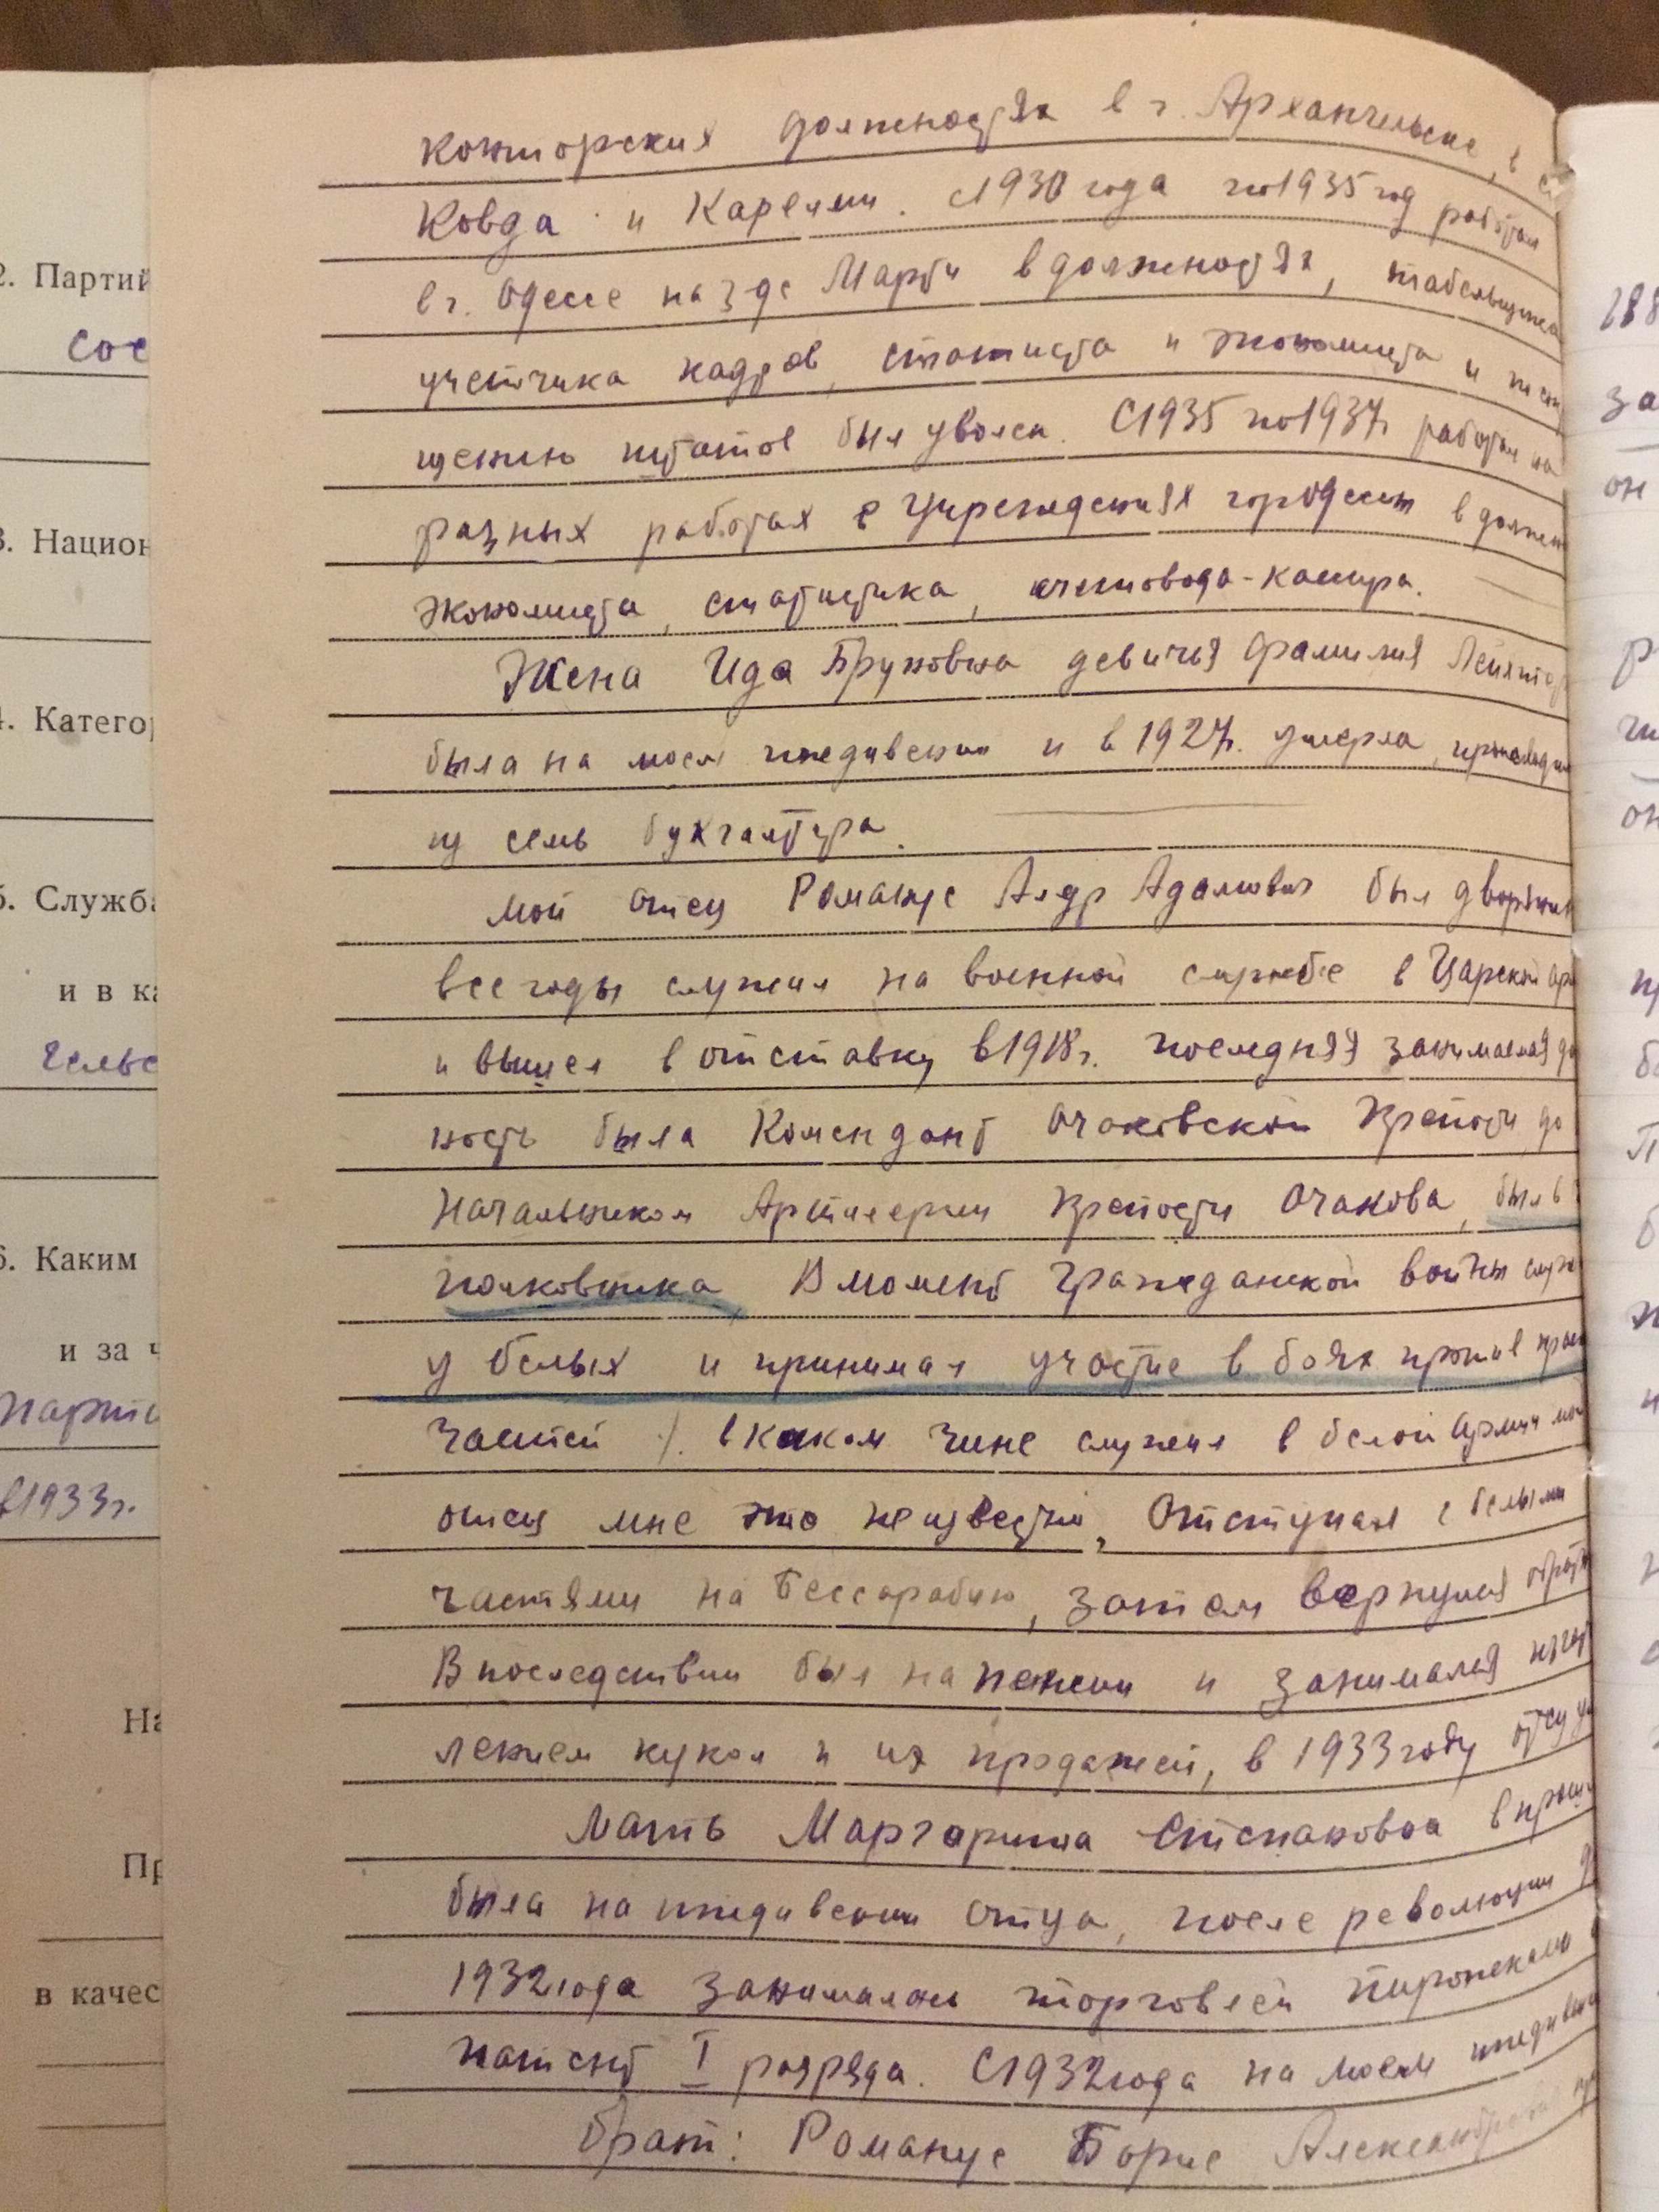 2. Партий
сос
3. Национ
4. Категор
5. Служба
и в ка
гельс
6. Каким
и за ч
парти
в1933г.
На
Пр
в качес
конторских должностях в г. Архангельске, в
Ковда и Карелии. с1930 года по1935 год работал
в г. Одессе на з-де Марти в должностях, табельщика
учетчика кадров, статиста и экономиста и по сокр
щению штатов был уволен. С1935 по1937г работал на
разных работах в учреждениях гор Одессы в должн
экономиста, статистика, счетовода-касира.
Жена Ида Бруновна девичья фамилия
была на моем иждивении и в 1927г. умерла,
из семь бухгалтера.
Мой отец Романус Алдр Адамович был дворянин
все годы служил на военной службе в Царской ар
и вышел в отставку в1918г. последняя занимаемая до
ность была Комендант Очаковской Крепости, до
Начальником Артилерии Крепости Очакова, был в
полковника. В момент Гражданской войны служ
у белых и принимал участие в боях против крас
частей. в каком чине служил в белой армии мой
отец мне это не известно, Отступал с белыми
частями на Бессарабию, затем вернулся обратн
В последствии был на пенсии и занимался изгот
лением кукол и их продажей, в 1933 году отец ум
Мать Маргарита Степановна в прош
была на иждивении отца, после революции д
1932 года занималась торговлей пирожками
патент I разряда. С1932 года на моем иждивен
Брат: Романус Борис Александрович
188
за
он
р
он
П
б